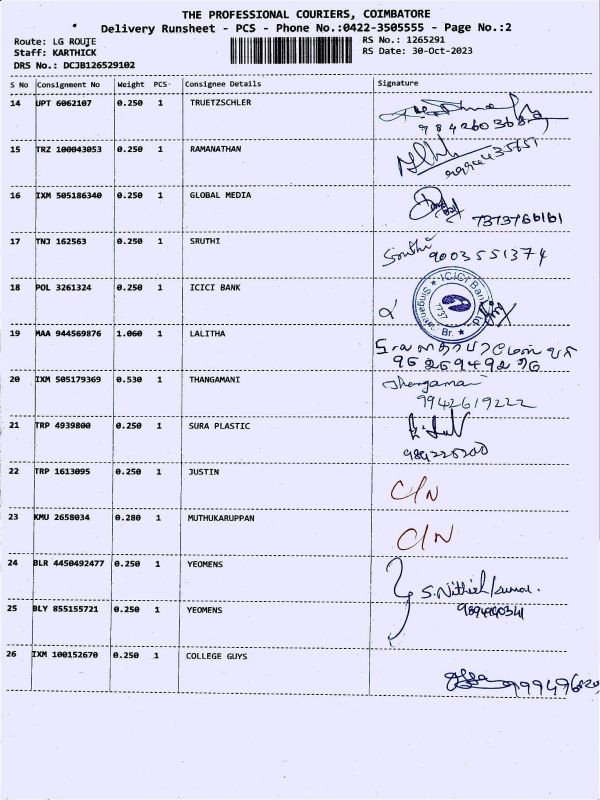 THE PROFESSIONAL COURIERS, COIMBATORE
Delivery Runsheet - PCS - Phone No.:0422-3505555 - Page No.:2
Route: LG ROUTE RS No.: 1265291
Staff: KARTHICK RS Date: 30-Oct-2023
DRS No.: DCJB126529102
S No Consignment No Weight PCS Consignee Details Signature
14 UPT 6062107 0.250 1 TRUETZSCHLER
15 TRZ 100043053 0.250 1 RAMANATHAN
16 IXM 505186340 0.250 1 GLOBAL MEDIA
7373766161
17 TNJ 162563 0.250 1 SRUTHI Sruthi 9003551374
18 POL 3261324 0.250 1 ICICI BANK ICICI Bank Singanallur Br.
19 MAA 944569876 1.060 1 LALITHA
9626949296
20 IXM 505179369 0.530 1 THANGAMANI Thangamani
9942619222
21 TRP 4939800 0.250 1 SURA PLASTIC
22 TRP 1613095 0.250 1 JUSTIN C/N
23 KMU 2658034 0.280 1 MUTHUKARUPPAN C/N
24 BLR 4450492477 0.250 1 YEOMENS S.Nithish kumar.
25 BLY 855155721 0.250 1 YEOMENS
26 IXM 100152670 0.250 1 COLLEGE GUYS